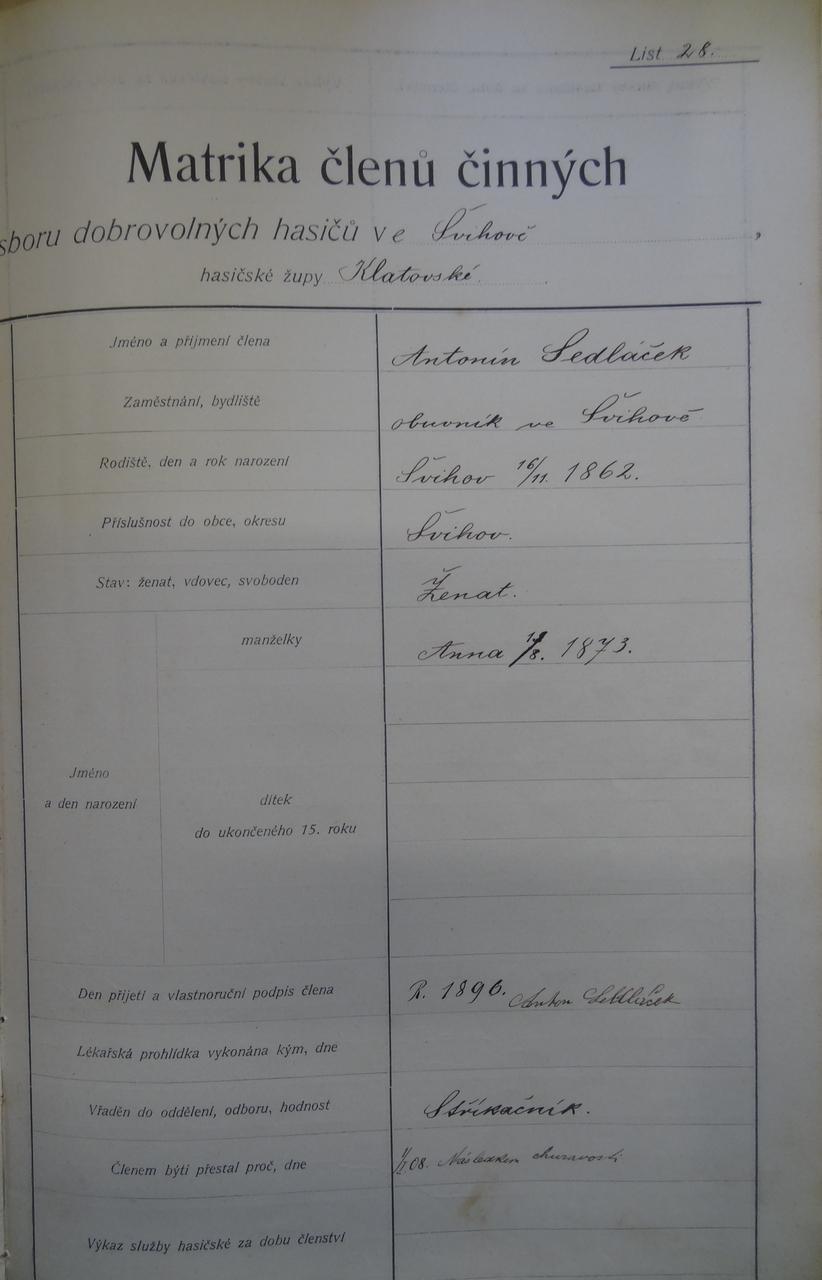 List 28.
Matrika členů činných
sboru dobrovolných hasičů ve Švihově,
hasičské župy Klatovské.
Jméno a příjmení člena Antonín Sedláček
Zaměstnání, bydliště obuvník ve Švihově
Rodiště, den a rok narození Švihov 16/11. 1862.
Příslušnost do obce, okresu Švihov.
Stav: ženat, vdovec, svoboden Ženat.
manželky Anna /8. 1873.
Jméno
a den narození
dítek
do ukončeného 15. roku
Den přijetí a vlastnoruční podpis člena R. 1896. Anton Sedláček
Lékařská prohlídka vykonána kým, dne
Vřaděn do oddělení, odboru, hodnost Stříkačník.
Členem býti přestal proč, dne 08. Následkem churavosti
Výkaz služby hasičské za dobu členství